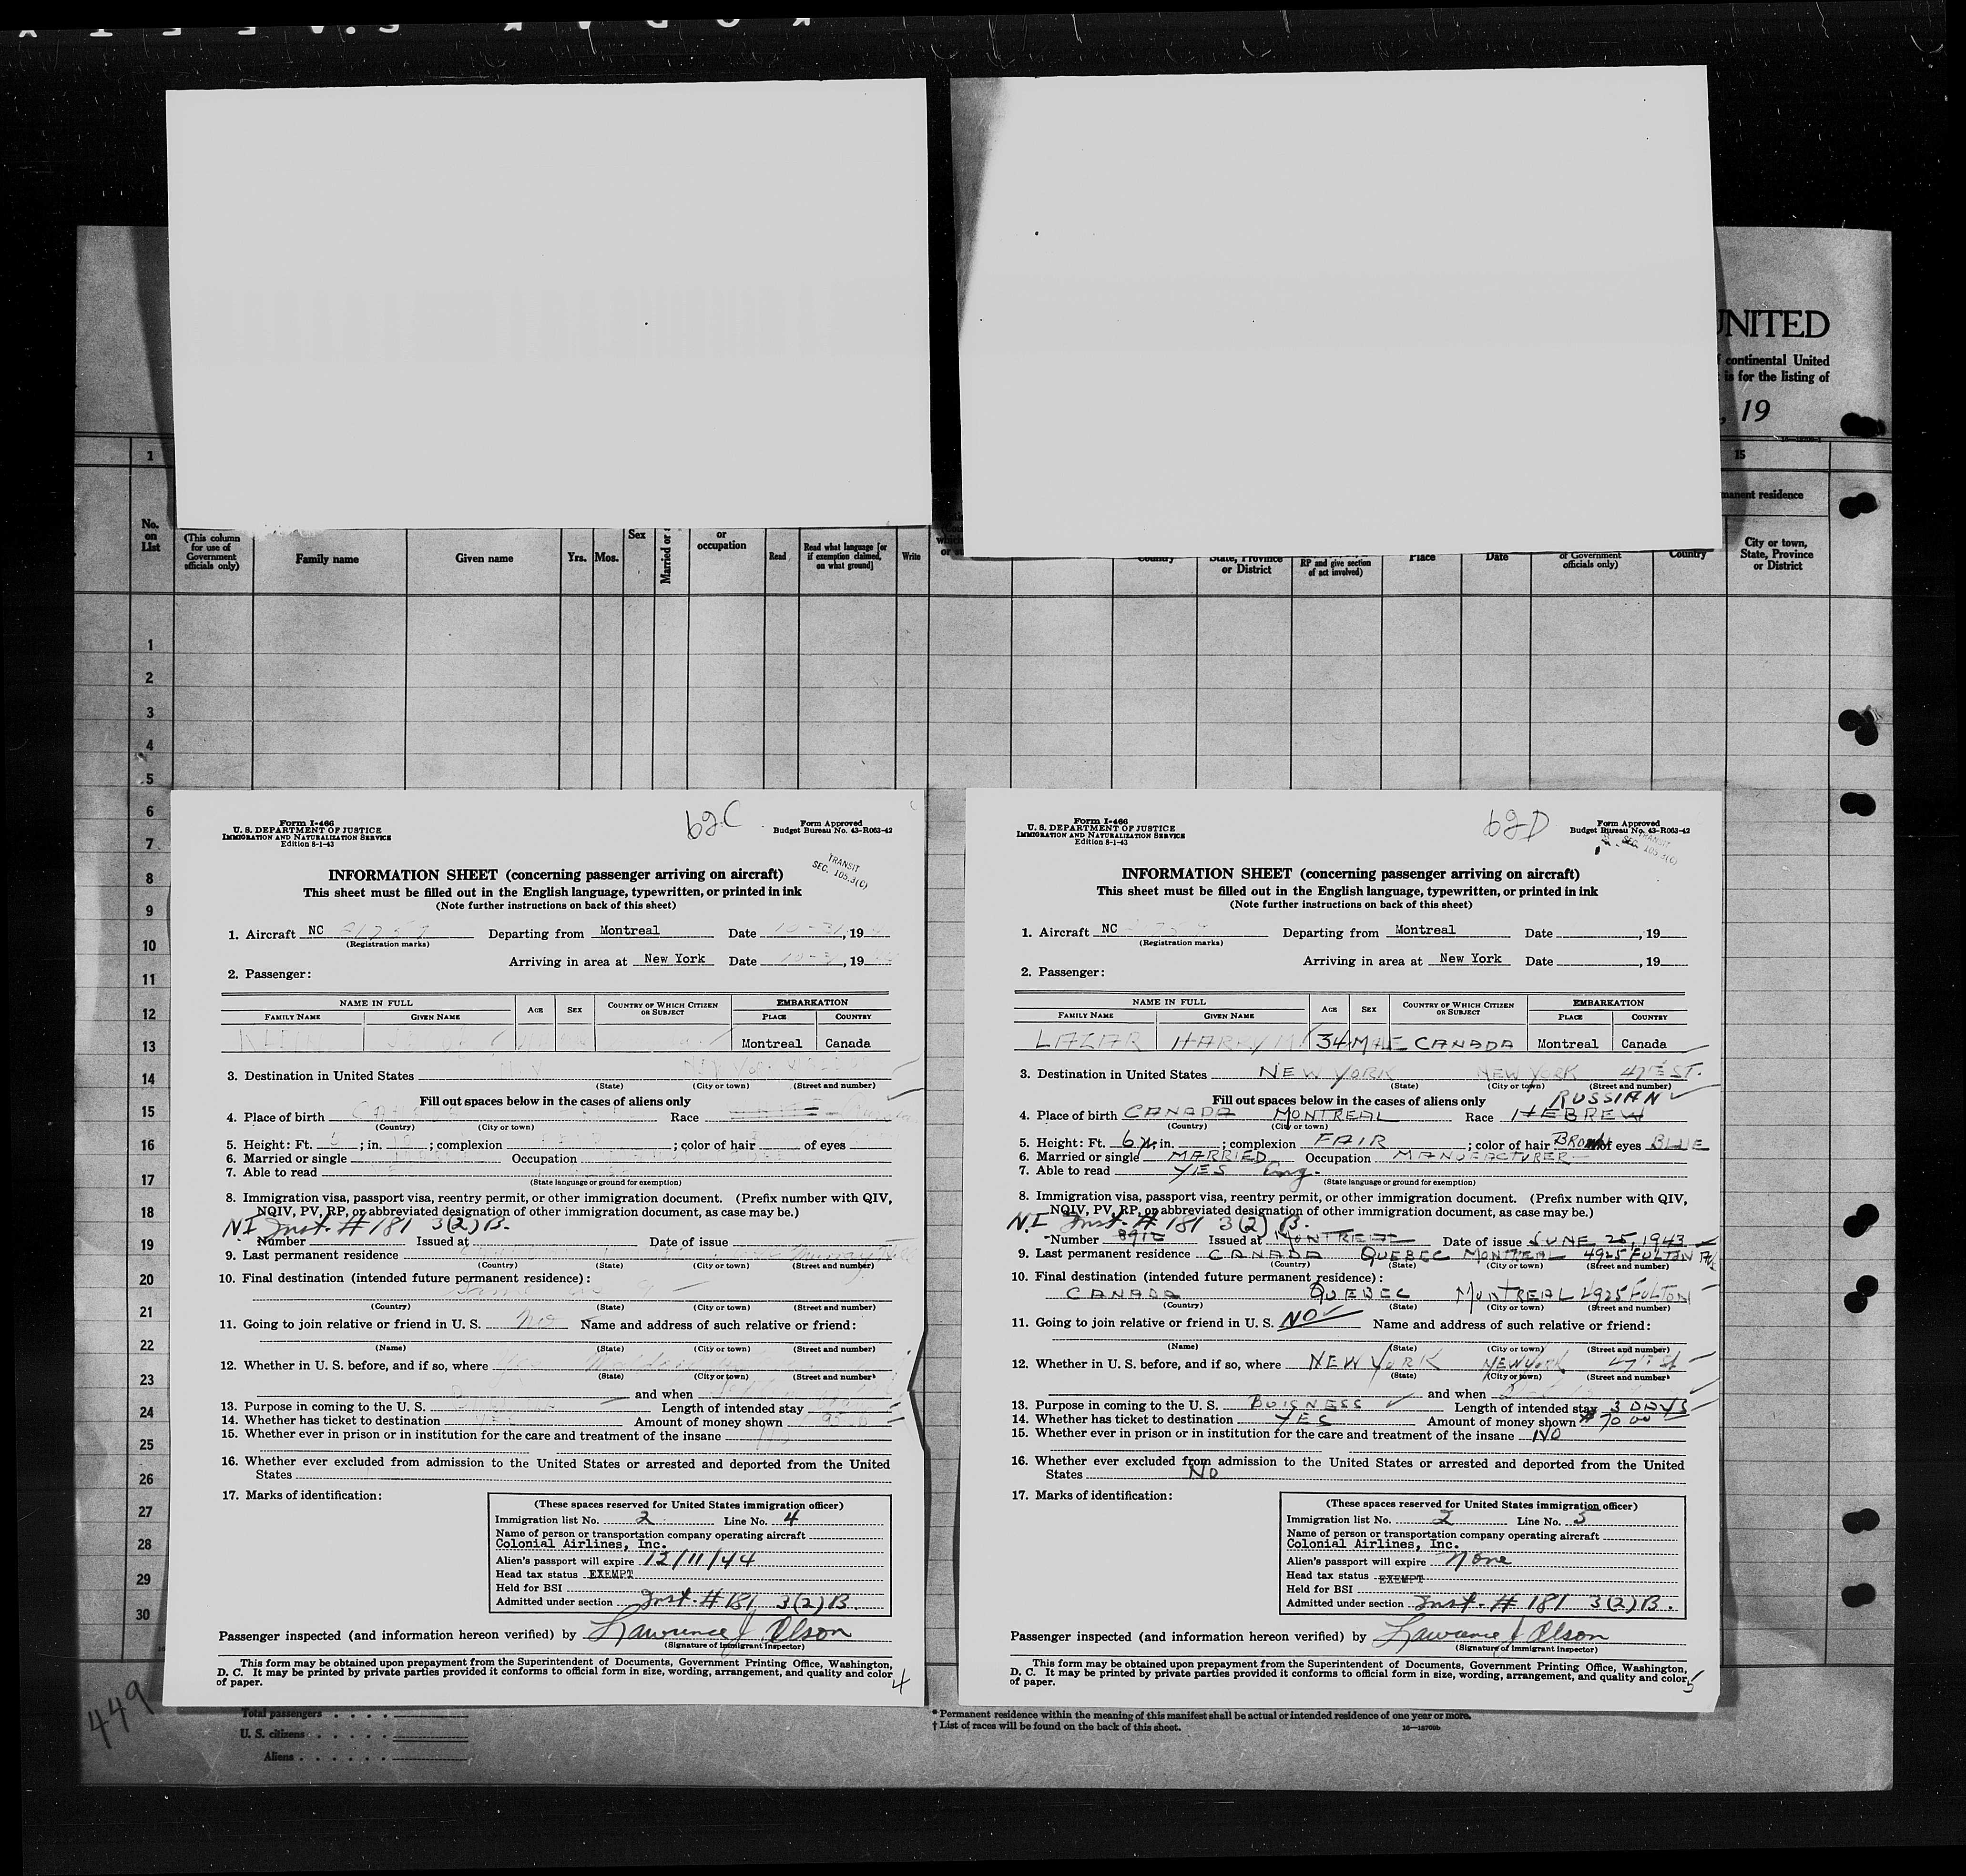 UNITED
continental United
is for the listing of
, 19
1
15
manent residence
No. on List
(This column for use of Government officials only)
Family name
Given name
Yrs.
Mos.
Sex
Married or
or occupation
Read
Read what language [or if exemption claimed, on what ground]
Write
Country
State, Province or District
RP and give section of act involved)
Place
Date
of Government officials only)
Country
City or town, State, Province or District
1
2
3
4
5
6
7
8
9
10
11
12
13
14
15
16
17
18
19
20
21
22
23
24
25
26
27
28
29
30
Form I-466
U. S. DEPARTMENT OF JUSTICE
IMMIGRATION AND NATURALIZATION SERVICE
Edition 8-1-43
62C
Form Approved
Budget Bureau No. 43-R063-42
TRANSIT
SEC. 105.3(C)
INFORMATION SHEET (concerning passenger arriving on aircraft)
This sheet must be filled out in the English language, typewritten, or printed in ink
(Note further instructions on back of this sheet)
1. Aircraft NC Departing from Montreal Date 10-31, 19
(Registration marks)
Arriving in area at New York Date , 19
2. Passenger:
NAME IN FULL AGE SEX COUNTRY OF WHICH CITIZEN OR SUBJECT EMBARKATION
FAMILY NAME GIVEN NAME PLACE COUNTRY
Montreal Canada
3. Destination in United States
(State) (City or town) (Street and number)
Fill out spaces below in the cases of aliens only
4. Place of birth Race
(Country) (City or town)
5. Height: Ft. ; in. ; complexion ; color of hair of eyes
6. Married or single Occupation
7. Able to read
(State language or ground for exemption)
8. Immigration visa, passport visa, reentry permit, or other immigration document. (Prefix number with QIV,
NQIV, PV, RP, or abbreviated designation of other immigration document, as case may be.)
NI Inst. # 181 3(2) B.
Number Issued at Date of issue
9. Last permanent residence
(Country) (State) (City or town) (Street and number)
10. Final destination (intended future permanent residence):
Same as 9
(Country) (State) (City or town) (Street and number)
11. Going to join relative or friend in U. S. No Name and address of such relative or friend:
(Name) (State) (City or town) (Street and number)
12. Whether in U. S. before, and if so, where
(State) (City or town) (Street and number)
and when
13. Purpose in coming to the U. S. Length of intended stay
14. Whether has ticket to destination YES Amount of money shown
15. Whether ever in prison or in institution for the care and treatment of the insane
16. Whether ever excluded from admission to the United States or arrested and deported from the United
States
17. Marks of identification:
(These spaces reserved for United States immigration officer)
Immigration list No. 2 Line No. 4
Name of person or transportation company operating aircraft
Colonial Airlines, Inc.
Alien's passport will expire 12/11/44
Head tax status EXEMPT
Held for BSI
Admitted under section Inst. # 181 3(2) B.
Passenger inspected (and information hereon verified) by Lawrence J Olson
(Signature of Immigrant Inspector)
This form may be obtained upon prepayment from the Superintendent of Documents, Government Printing Office, Washington,
D. C. It may be printed by private parties provided it conforms to official form in size, wording, arrangement, and quality and color
of paper.
4
Form I-466
U. S. DEPARTMENT OF JUSTICE
IMMIGRATION AND NATURALIZATION SERVICE
Edition 8-1-43
62D
Form Approved
Budget Bureau No. 43-R063-42
TRANSIT
SEC. 105.3(C)
INFORMATION SHEET (concerning passenger arriving on aircraft)
This sheet must be filled out in the English language, typewritten, or printed in ink
(Note further instructions on back of this sheet)
1. Aircraft NC Departing from Montreal Date , 19
(Registration marks)
Arriving in area at New York Date , 19
2. Passenger:
NAME IN FULL AGE SEX COUNTRY OF WHICH CITIZEN OR SUBJECT EMBARKATION
FAMILY NAME GIVEN NAME PLACE COUNTRY
LAZAR HARRY M. 34 MALE CANADA Montreal Canada
3. Destination in United States NEW YORK NEW YORK 47TH ST.
(State) (City or town) (Street and number)
Fill out spaces below in the cases of aliens only
RUSSIAN
4. Place of birth CANADA MONTREAL Race HEBREW
(Country) (City or town)
5. Height: Ft. 6 in. ; complexion FAIR ; color of hair BROWN of eyes BLUE
6. Married or single MARRIED Occupation MANUFACTURER
7. Able to read YES Eng.
(State language or ground for exemption)
8. Immigration visa, passport visa, reentry permit, or other immigration document. (Prefix number with QIV,
NQIV, PV, RP, or abbreviated designation of other immigration document, as case may be.)
N.I Inst. # 181 3(2) B.
Number 8912 Issued at MONTREAL Date of issue JUNE 25, 1943
9. Last permanent residence CANADA QUEBEC MONTREAL 4925 FULTON AVE
(Country) (State) (City or town) (Street and number)
10. Final destination (intended future permanent residence):
CANADA QUEBEC MONTREAL 4925 FULTON
(Country) (State) (City or town) (Street and number)
11. Going to join relative or friend in U. S. NO Name and address of such relative or friend:
(Name) (State) (City or town) (Street and number)
12. Whether in U. S. before, and if so, where NEW YORK NEW York 47TH St
(State) (City or town) (Street and number)
and when
13. Purpose in coming to the U. S. BUISNESS Length of intended stay 3 DAYS
14. Whether has ticket to destination YES Amount of money shown $70 00
15. Whether ever in prison or in institution for the care and treatment of the insane NO
16. Whether ever excluded from admission to the United States or arrested and deported from the United
States No
17. Marks of identification:
(These spaces reserved for United States immigration officer)
Immigration list No. 2 Line No. 5
Name of person or transportation company operating aircraft
Colonial Airlines, Inc.
Alien's passport will expire None
Head tax status EXEMPT
Held for BSI
Admitted under section Inst. # 181 3(2) B.
Passenger inspected (and information hereon verified) by Lawrence J Olson
(Signature of Immigrant Inspector)
This form may be obtained upon prepayment from the Superintendent of Documents, Government Printing Office, Washington,
D. C. It may be printed by private parties provided it conforms to official form in size, wording, arrangement, and quality and color
of paper.
5
449
Total passengers . . . .
U. S. citizens . . . . .
Aliens . . . . . .
* Permanent residence within the meaning of this manifest shall be actual or intended residence of one year or more.
† List of races will be found on the back of this sheet.